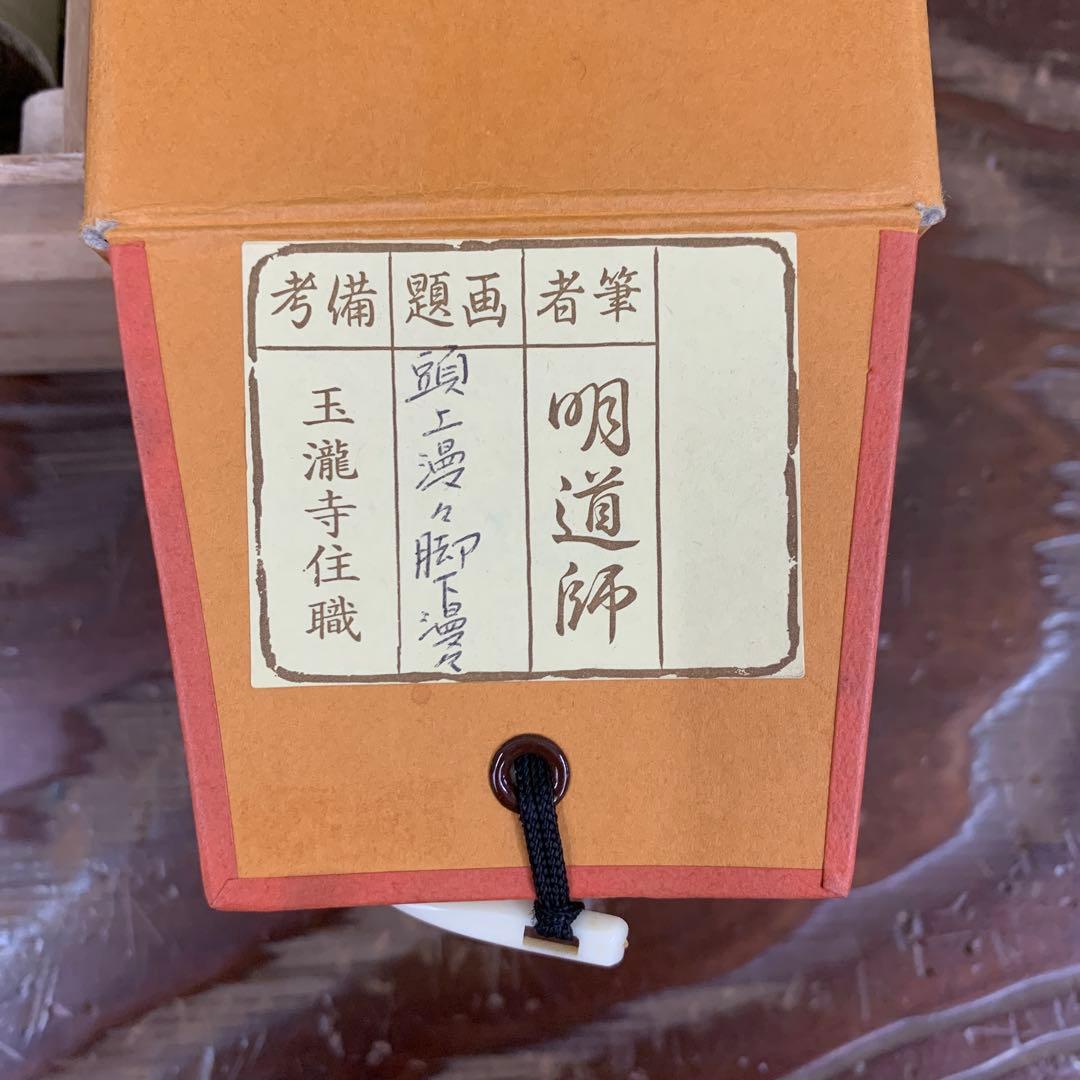 筆者
明道師
画題
頭上漫々脚下漫々
備考
玉瀧寺住職